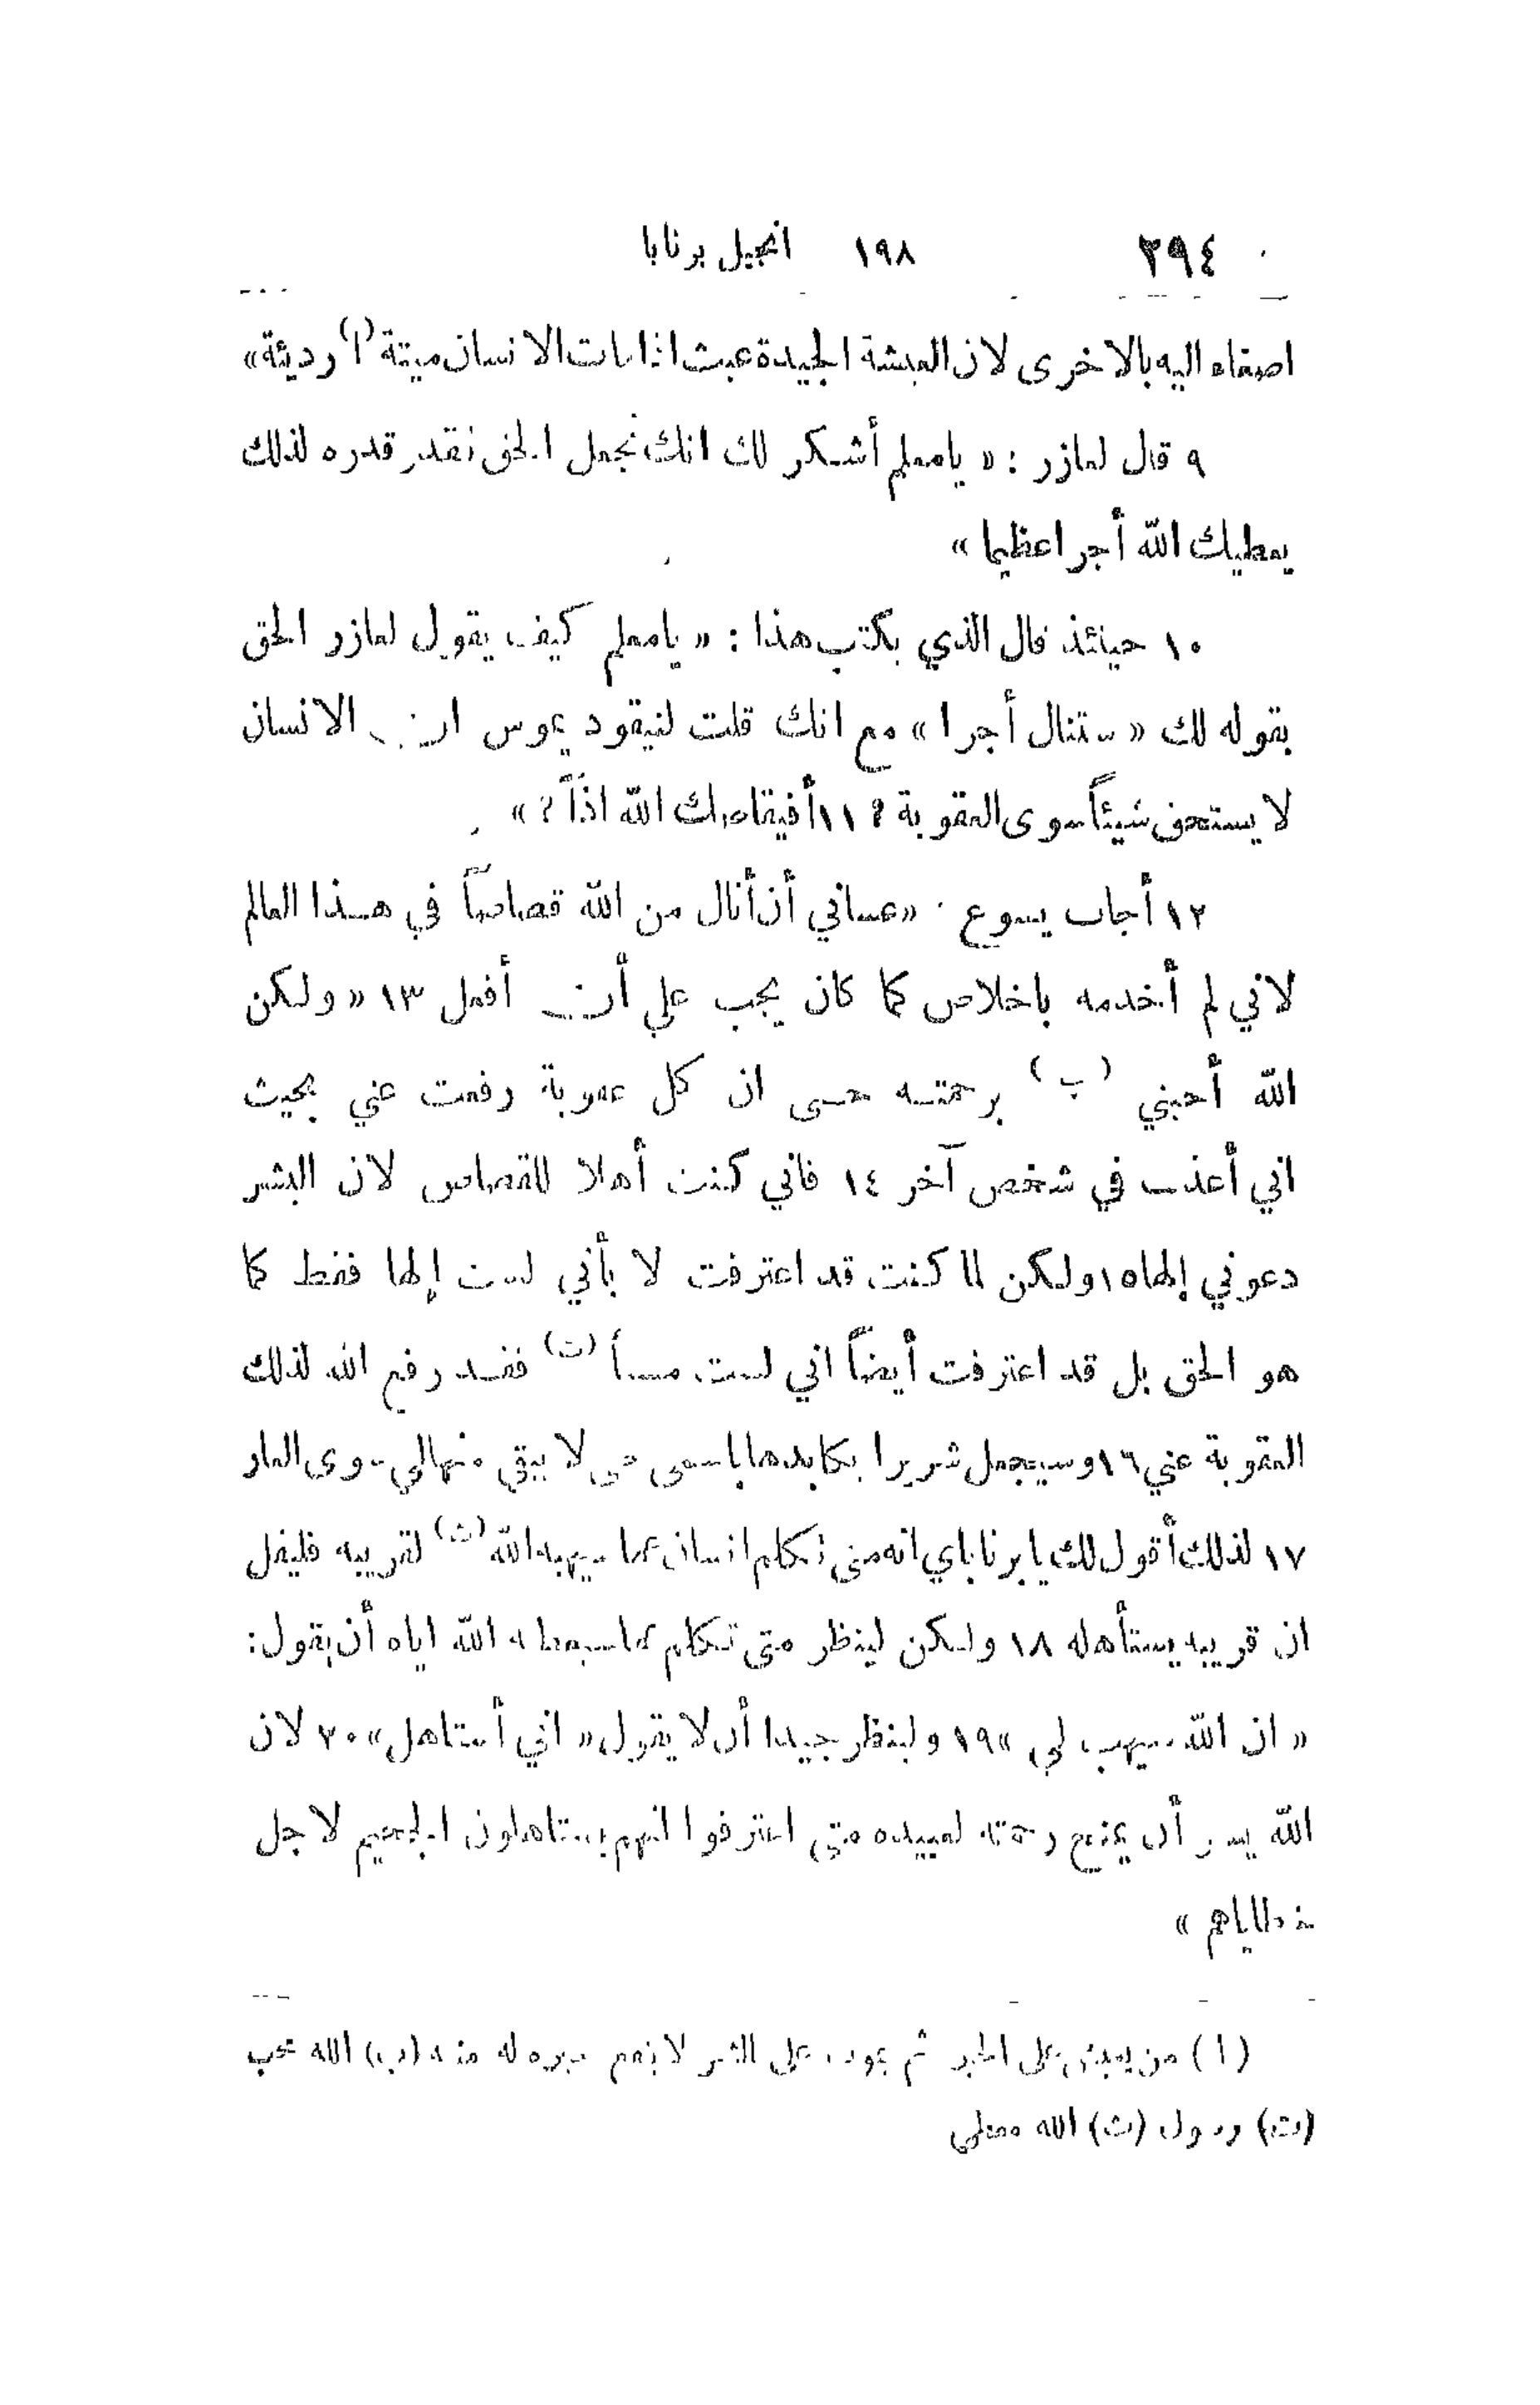 ٢٩٤ ١٩٨ انجيل برنابا
اصغاء اليه بالاخرى لان العيشة الجيدة عبث اذا مات الانسان ميتة (ا) رديئة»
٩ قال لعازر : « يامعلم أشكر لك انك تجعل الحق يقدر قدره لذلك
يعطيك الله أجرا عظيما »
١٠ حينئذ قال الذي يكتب هذا : « يامعلم كيف يقول لعازر الحق
بقوله لك « ستنال أجرا » مع انك قلت لنيقوديموس ان الانسان
لا يستحق شيئاً سوى العقوبة ؟ ١١ أفيقاصك الله اذاً ؟ »
١٢ أجاب يسوع . « عساني أن أنال من الله قصاصاً في هذا العالم
لاني لم أخدمه باخلاص كما كان يجب علي أن أفعل ١٣ « ولكن
الله أحبني (ب) برحمته حتى ان كل عقوبة رفعت عني بحيث
اني أعذب في شخص آخر ١٤ فاني كنت أهلا للقصاص لان البشر
دعوني إلها ١٥ ولكن لما كنت قد اعترفت لا بأني لست إلها فقط كما
هو الحق بل قد اعترفت أيضاً اني لست مسيا (ت) فقد رفع الله لذلك
العقوبة عني ١٦ وسيجعل شريرا يكابدها باسمي حتى لا يبقى منها لي سوى العار
١٧ لذلك أقول لك يا برناباي انه متى تكلم انسان عما سيهبه الله (ث) لقريبه فليقل
ان قريبه يستأهله ١٨ ولكن لينظر متى تكلم عما سيعطاه الله اياه أن يقول :
« ان الله سيهب لي » ١٩ ولينظر جيدا أن لا يقول « اني أستاهل » ٢٠ لان
الله يسر أن يمنح رحمته لعبيده متى اعترفوا انهم يستاهلون الجحيم لاجل
خطاياهم »
(ا) من يعيش على الخير ثم يموت على الشر لا ينفع خيره له منه (ب) الله محب
(ت) رسول (ث) الله معطي